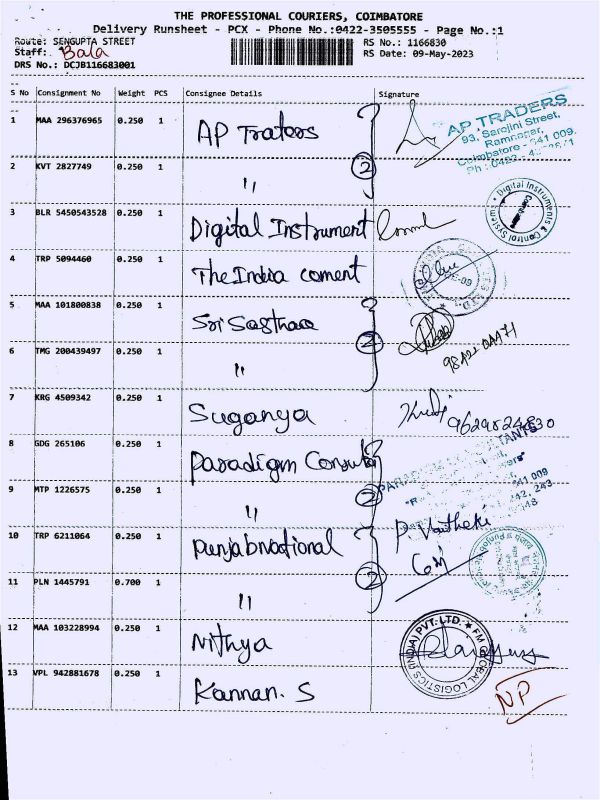 THE PROFESSIONAL COURIERS, COIMBATORE
Delivery Runsheet - PCX - Phone No.:0422-3505555 - Page No.:1
Route: SENGUPTA STREET
RS No.: 1166830
Staff: Bala
RS Date: 09-May-2023
DRS No.: DCJB116683001
S No Consignment No Weight PCS Consignee Details Signature
1 MAA 296376965 0.250 1 AP Traders
AP TRADERS
93, Sarojini Street,
Ramnagar,
Coimbatore - 641 009.
Ph : 0422 -
2 KVT 2827749 0.250 1 "
2
3 BLR 5450543528 0.250 1 Digital Instrument
Digital Instruments & Control System
4 TRP 5094460 0.250 1 The India coment
5 MAA 101800838 0.250 1 Sri Sastha
6 TMG 200439497 0.250 1 "
2
7 KRG 4509342 0.250 1 Suganya
8 GDG 265106 0.250 1 Paradigm Consulta
9 MTP 1226575 0.250 1 "
2
641 009
10 TRP 6211064 0.250 1 Punjabnational
11 PLN 1445791 0.700 1 "
2
12 MAA 103228994 0.250 1 Nithya
FM GLOBAL LOGISTICS (INDIA) PVT. LTD.
13 VPL 942881678 0.250 1 Kannan. S
NP